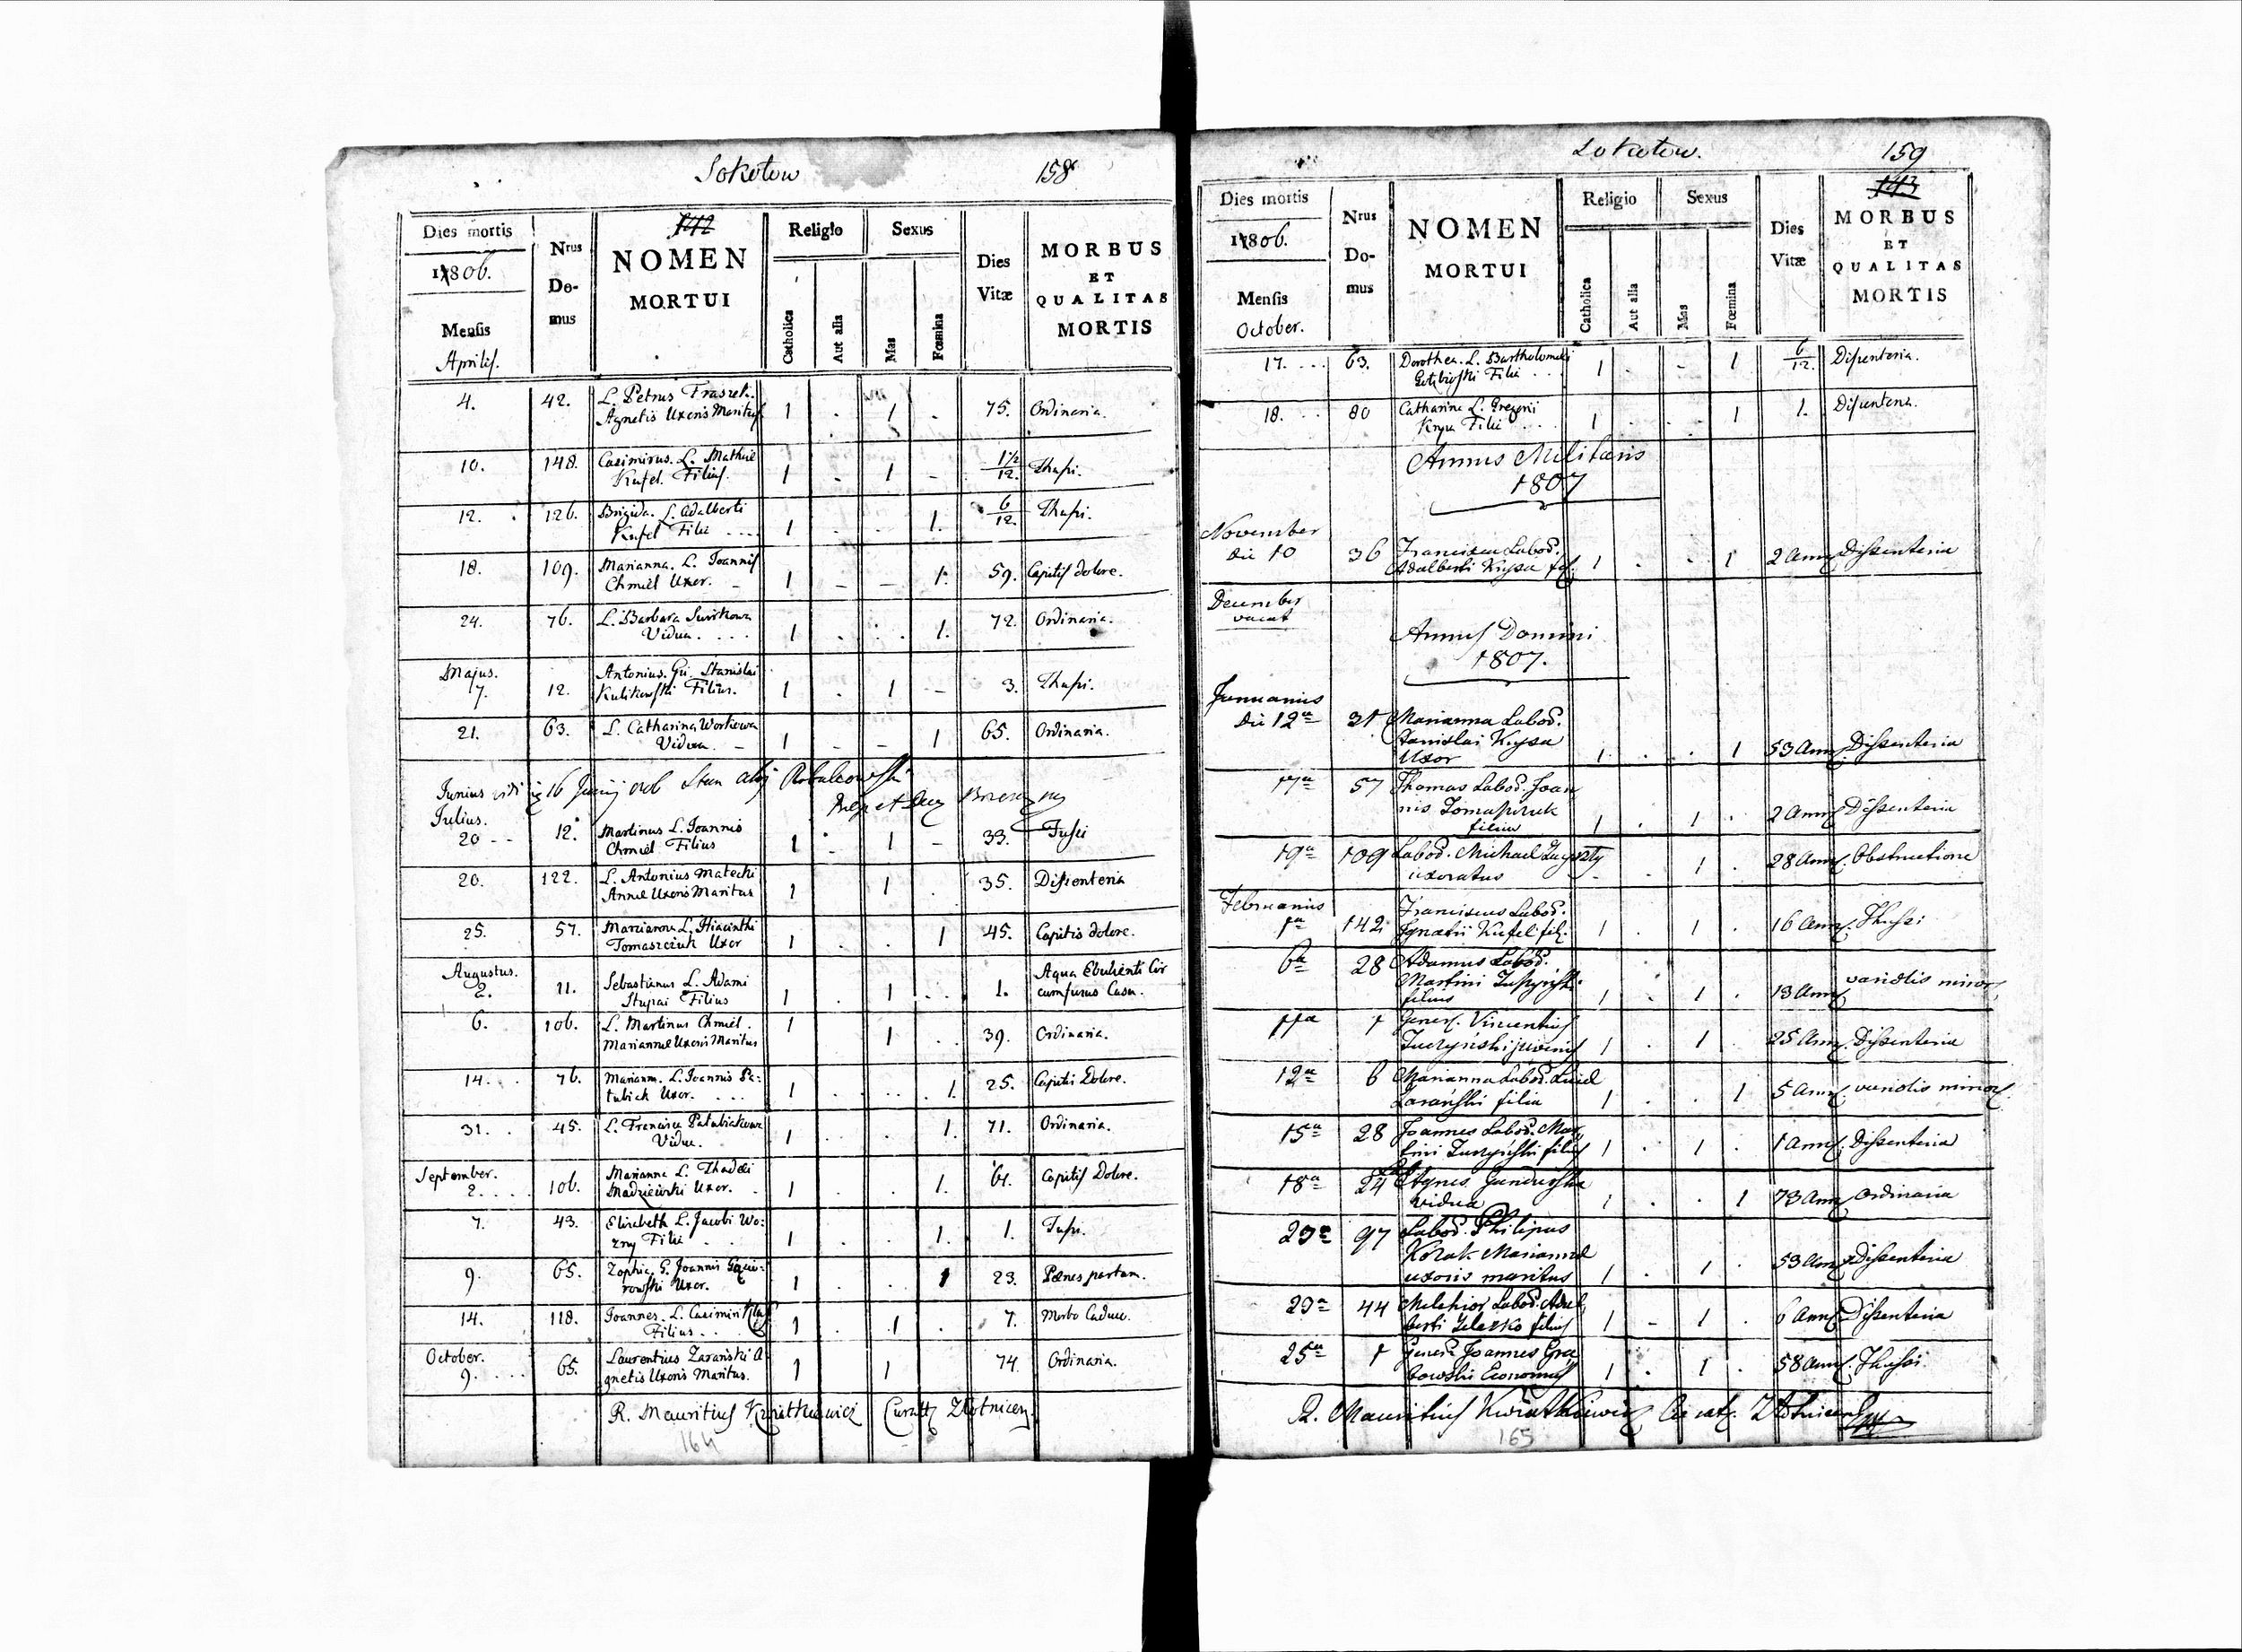 Sokołow 158
142
Dies mortis
1806.
Mensis
Aprilis.
Nrus
Do-
mus
NOMEN
MORTUI
Religio
Catholica
Aut alia
Sexus
Mas
Fœmina
Dies
Vitæ
MORBUS
ET
QUALITAS
MORTIS
4. 42. L. Petrus
Agnetis Uxoris Maritus 1 . 1 . 75. Ordinaria.
10. 148. Casimirus. L. Mathiæ
Kufel. Filius. 1 . 1 - 1½/12. Thusi.
12. 126. Brigida. L. Adalberti
Kufel Filia 1 . . 1. 6/12. Thusi.
18. 109. Marianna. L. Joannis
Chmiel Uxor. 1 - - 1. 59. Capitis dolore.
24. 76. L. Barbara
Vidua. 1 . . 1. 72. Ordinaria.
Majus.
7. 12. Antonius. Stanislai
Kulikowski Filius. 1 . 1 - 3. Thusi.
21. 63. L. Catharina
Vidua. 1 - - 1 65. Ordinaria.
Junius 16
Julius.
20 12. Martinus L. Joannis
Chmiel Filius 1 - 1 - 33. Tussi
20. 122. L. Antonius Matecki
Annæ Uxoris Maritus 1 1 . 35. Dissenteria
25. 57. L. Hiacinthi
Tomaszczuk Uxor 1 . . 1 45. Capitis dolore.
Augustus.
2. 11. Sebastianus L. Adami
Filius 1 . 1 . . 1. Aqua Ebulienti Cir
cumfusus Casu.
6. 106. L. Martinus Chmiel.
Mariannæ Uxoris Maritus 1 1 . . 39. Ordinaria.
14. 76. Mariann. L. Joannis Pa:
tubick Uxor. 1 . . . 1. 25. Capitis Dolore.
31. 45. L.
Vidua. 1 . . 1. 71. Ordinaria.
September.
2. 106. Marianna L. Thadei
Uxor. 1 . . 1. 61. Capitis Dolore.
7. 43. Elisabeth L. Jacobi Wo:
zny Filia 1 . . 1. 1. Tussi.
9. 65. Zophia. G. Joannis
rowski Uxor. 1 . . 1 23. Penes partum.
14. 118. Joannes. L. Casimiri
Filius. 1 . 1 . 7. Morbo Caduco.
October.
9. 65. Laurentius Zaranski A
gnetis Uxoris Maritus. 1 1 74. Ordinaria.
R. Mauritius Kwiatkiewicz Curatus Złotnicen.
164
Sokołow. 159
143
Dies mortis
1806.
Mensis
October.
Nrus
Do-
mus
NOMEN
MORTUI
Religio
Catholica
Aut alia
Sexus
Mas
Fœmina
Dies
Vitæ
MORBUS
ET
QUALITAS
MORTIS
17. 63. Dorothea. L. Bartholomei
Filia 1 . - 1 6/12. Disenteria.
18. 80 Catharina L. Gregorii
Krysa Filia 1 . . 1 1. Disenteria.
Annus Militaris
1807
November
die 10 36 Francisca Labod.
Adalberti Krysa fil. 1 . . 1 2 Ann. Dissenteria
December
vacat
Annus Domini
1807.
Januarius
die 12a 31 Marianna Labod.
Stanislai Krysa
Uxor 1 . . 1 53 Ann. Dissenteria
17a 57 Thomas Labod. Joan
nis
filius 1 . 1 . 2 Ann. Dissenteria
19a 109 Labod. Michael
uxoratus - . 1 . 28 Ann. Obstructione
Februarius
1a 142 Franciscus Labod.
Ignatii Kufel fil. 1 . 1 . 16 Ann. Thussi
6a 28 Adamus Labod.
Martini
filius 1 . 1 . 13 Ann. variolis minor.
11a 1 Gener. Vincentius
juvenis 1 . 1 25 Ann. Dissenteria
12a 6 Marianna Labod.
Zarański filia 1 . . 1 5 Ann. variolis minor.
15a 28 Joannes Labod. Mar
tini filius 1 . 1 . 1 Ann. Dissenteria
18a 24 Agnes
vidua 1 . . 1 73 Ann. Ordinaria
23a 97 Labod. Philipus
Kozak Mariannæ
uxoris maritus 1 . 1 . 53 Ann. Dissenteria
23a 44 Melchior Labod. Adal
berti Zelezko filius 1 - 1 . 6 Ann. Dissenteria
25a 1 Generos Joannes Gra
bowski Economus 1 . 1 . 58 Ann. Thussi.
R. Mauritius Kwiatkiewicz Curatus Złotnicens
165